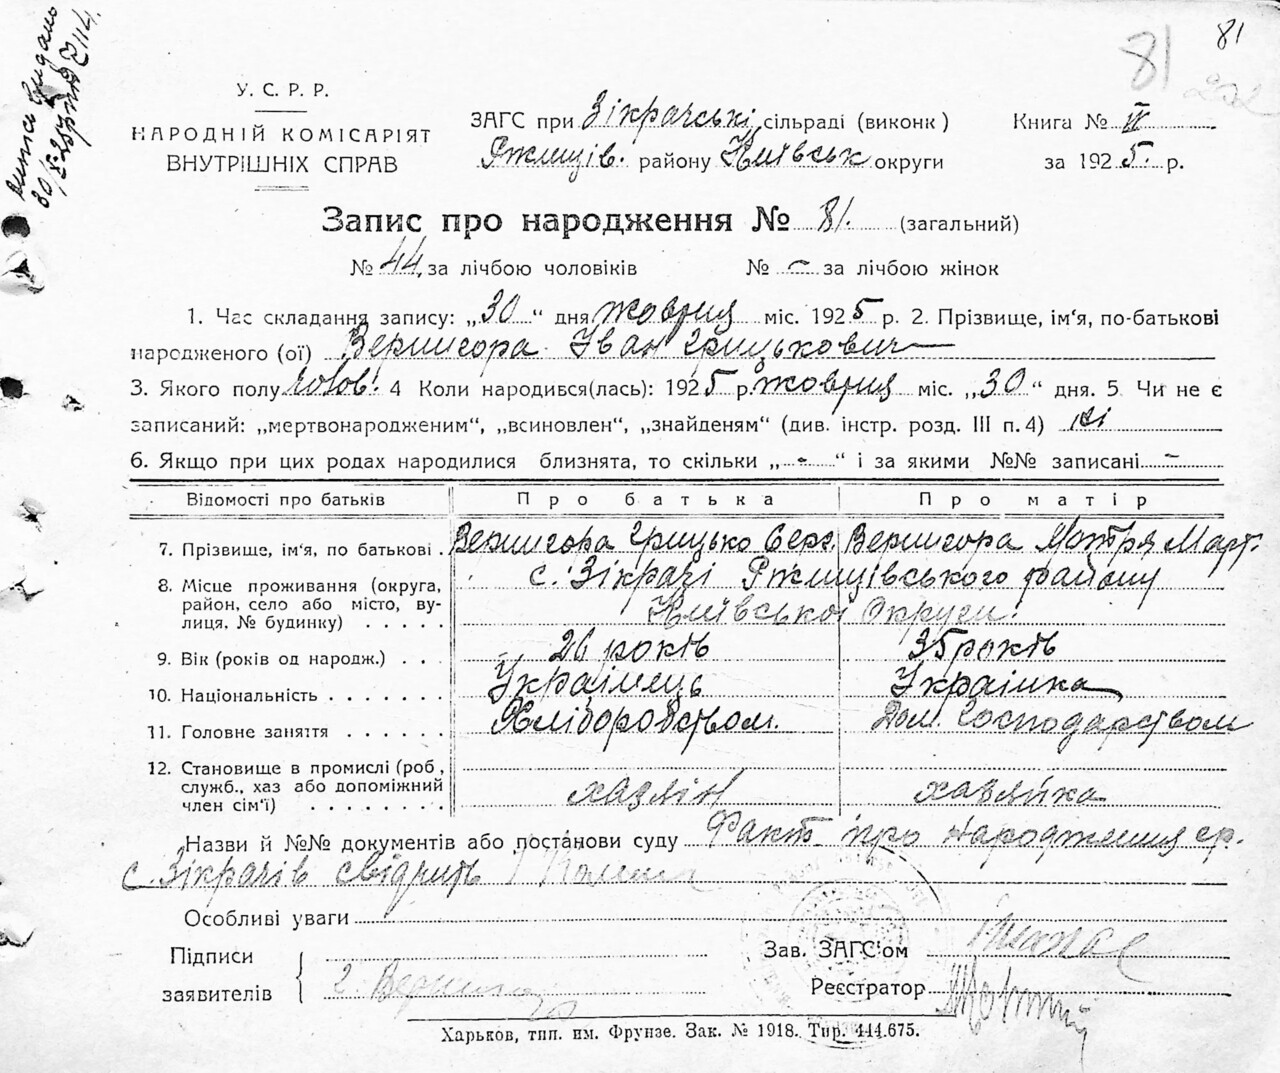 81
81
202
У. С. Р. Р.
НАРОДНІЙ КОМІСАРІЯТ
ВНУТРІШНІХ СПРАВ
ЗАГС при Зікрачські сільраді (виконк)
Ржищів. району Київськ округи
Книга № II
за 1925. р.
Запис про народження № 81. (загальний)
№ 44, за лічбою чоловіків № – за лічбою жінок
1. Час складання запису: „30“ дня жовтня міс. 1925 р. 2. Прізвище, ім'я, по-батькові
народженого (ої) Вернигора Іван Грицькович
3. Якого полу чолов. 4 Коли народився(лась): 1925 р. жовтня міс. „30“ дня. 5. Чи не є
записаний: „мертвонародженим“, „всиновлен“, „знайденям“ (див. інстр. розд. III п. 4) ні
6. Якщо при цих родах народилися близнята, то скільки „-“ і за якими №№ записані –
Відомості про батьків Про батька Про матір
7. Прізвище, ім'я, по батькові . Вернигора Грицько Серг. Вернигора Мотря Март.
8. Місце проживання (округа, район, село або місто, вулиця, № будинку) . . . . . с. Зікрачі Ржищівського району
Київської Округи.
9. Вік (років од народж.) . . . 26 років 35 років
10. Національність . . . . . . . Українець Українка
11. Головне заняття . . . . . . Хліборобством. Дом. Господарством
12. Становище в промислі (роб., служб., хаз або допоміжний член сім'ї) . . . . . . . хазяїн хазяйка
Назви й №№ документів або постанови суду Факт про народження гр.
с. Зікрачів свідчить
Особливі уваги
Підписи
заявителів Г. Вернигора
Зав. ЗАГС'ом
Реєстратор
Харьков, тип. им. Фрунзе. Зак. № 1918. Тир. 444.675.